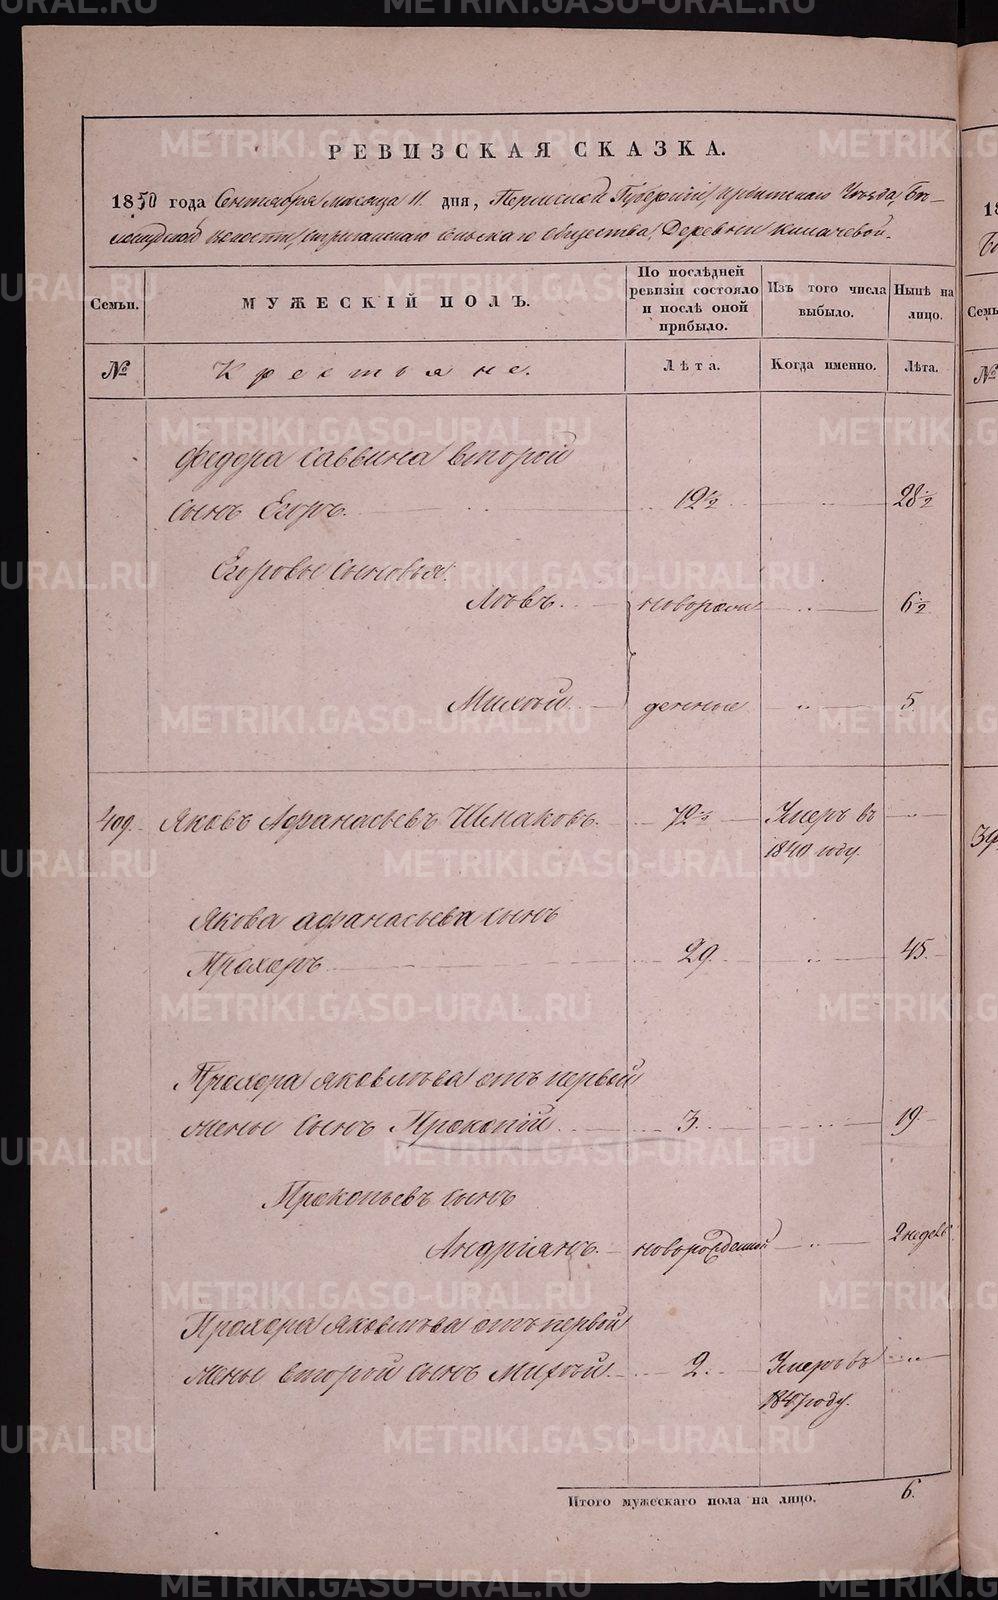 РЕВИЗСКАЯ СКАЗКА.
1850 года Сентября месяца 11 дня, Пермской Губернiи, Ирбитскаго Уѣзда, Бѣ-
лослудской волости, стриганскаго сельскаго общества, Деревни Кипачевой.
Семьи.
МУЖЕСКIЙ ПОЛЪ.
По послѣдней
ревизiи состояло
и послѣ оной
прибыло.
Изъ того числа
выбыло.
Нынѣ на
лицо.
№
Крестьяне.
Лѣта.
Когда именно.
Лѣта.
Федора саввина второй
сынъ Егоръ. 12½ 28½
Егоровы сыновья.
Львъ. новорож 6½
Михѣй денные 5
409. Яковъ Афанасьевъ Шмаковъ. Умеръ въ
1840 году.
Якова афанасьева сынъ
Прохоръ 29. 45.
Прохора яковлѣва отъ первой
жены сынъ Прокопiй 3. 19
Прокопьевъ сынъ
Андрiянъ. новорожденной 2 недѣль
Прохора Яковлѣва отъ первой
жены второй сынъ Михѣй. 2. Умеръ въ
году.
Итого мужескаго пола на лицо. 6.
METRIKI.GASO-URAL.RU